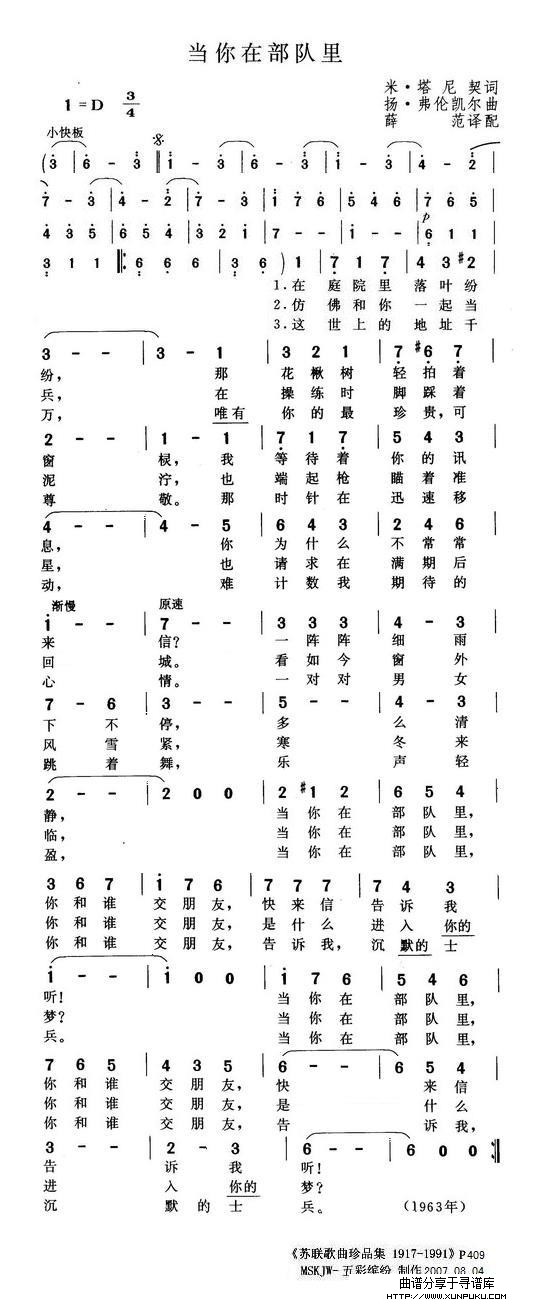 当你在部队里
米·塔尼契词
1=D 3/4
扬·弗伦凯尔曲
薛范译配
小快板
(3 | 6 - 3 || 1 - 3 | 6 - - | 3 - - | 4 - 2 |
7 - 3 | 4 - 2 | 7 - 3 | 1 7 6 | 5 4 6 | 7 6 5 |
4 3 5 | 6 5 4 | 3 2 1 | 7 - - | 1 - - | 6 1 1 |
p
3 1 1 |: 6 6 6 | 3 6 ) 1 | 7 1 7 | 4 3 #2 |
1.在 庭院里 落叶纷
2.仿 佛和你 一起当
3.这 世上的 地址千
3 - - | 3 - 1 | 3 2 1 | 7 #6 7 |
纷， 那 花楸树 轻拍着
兵， 在 操练时 脚踩着
万， 唯有 你的最 珍贵，可
2 - - | 1 - 1 | 7 1 7 | 5 4 3 |
窗 棂，我 等待着 你的讯
泥 泞，也 端起枪 瞄着准
尊 敬。那 时针在 迅速移
4 - - | 4 - 5 | 6 4 3 | 2 4 6 |
息， 你 为什么 不常常
星， 也 请求在 满期后
动， 难 计数我 期待的
渐慢 原速
1 - - | 7 - - | 3 3 3 | 4 - 3 |
来 信？ 一阵阵 细雨
回 城。 看如今 窗外
心 情。 一对对 男女
7 - 6 | 3 - - | 5 - - | 4 - 3 |
下不 停， 多 么清
风雪 紧， 寒 冬来
跳着 舞， 乐 声轻
2 - - | 2 0 0 | 2 #1 2 | 6 5 4 |
静， 当你在 部队里，
临， 当你在 部队里，
盈， 当你在 部队里，
3 6 7 | 1 7 6 | 7 7 7 | 7 4 3 |
你和谁 交朋友， 快来信 告诉我
你和谁 交朋友， 是什么 进入你的
你和谁 交朋友， 告诉我， 沉默的士
1 - - | 1 0 0 | 1 7 6 | 8 7 6 |
听！ 当你在 部队里，
梦？ 当你在 部队里，
兵。 当你在 部队里，
7 6 5 | 4 3 5 | 6 - - | 6 5 4 |
你和谁 交朋友， 快 来信
你和谁 交朋友， 是 什么
你和谁 交朋友， 告 诉我，
3 - - | 2 - 3 | 6 - - | 6 0 0 :||
告 诉我 听！
进 入你的 梦？
沉 默的士 兵。 (1963年)
《苏联歌曲珍品集 1917-1991》P409
MSKJW-五彩缤纷 制作2007.08.04
曲谱分享于寻谱库
http://www.xunpuku.com